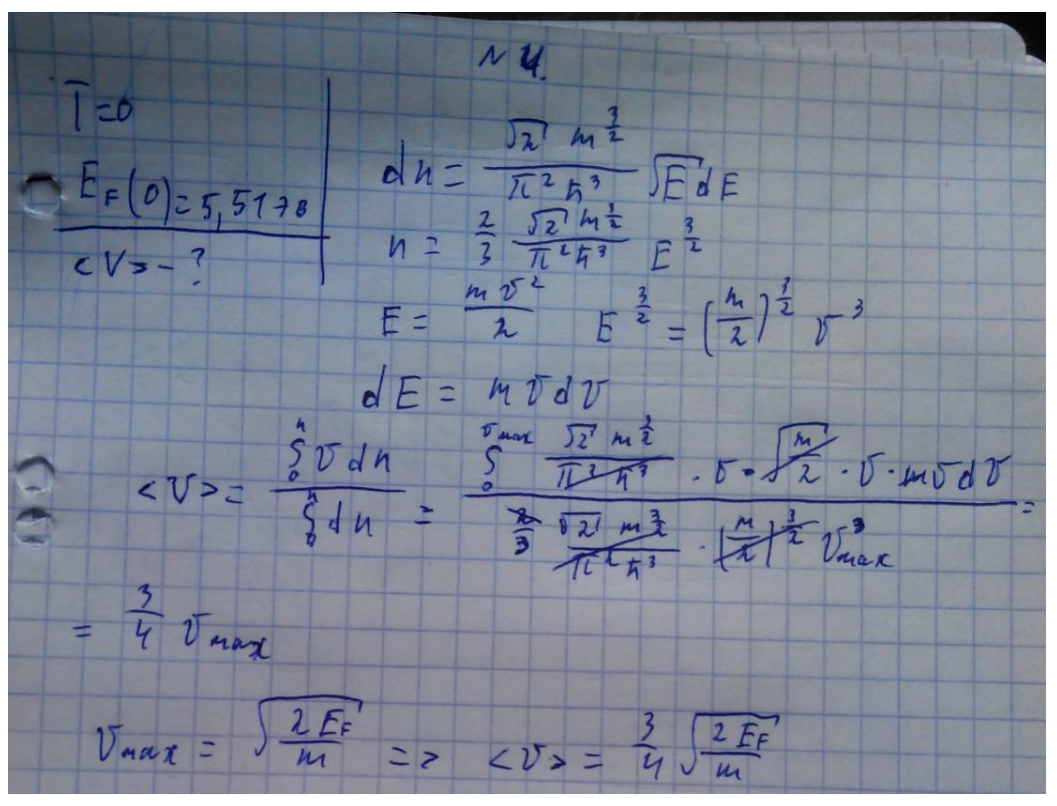 N 4.
T=0
E_F(0)=5,51 эВ
<V> - ?
dn = \frac{\sqrt{2} m^{\frac{3}{2}}}{π^2 ħ^3} \sqrt{E} dE
n = \frac{2}{3} \frac{\sqrt{2} m^{\frac{3}{2}}}{π^2 ħ^3} E^{\frac{3}{2}}
E = \frac{m v^2}{2} E^{\frac{3}{2}} = (\frac{m}{2})^{\frac{3}{2}} v^3
dE = m v dv
<v> = \frac{\int_0^n v dn}{\int_0^n dn} = \frac{\int_0^{v_{max}} \frac{\sqrt{2} m^{\frac{3}{2}}}{π^2 ħ^3} · v · \sqrt{\frac{m}{2}} · v · m v dv}{\frac{2}{3} \frac{\sqrt{2} m^{\frac{3}{2}}}{π^2 ħ^3} · (\frac{m}{2})^{\frac{3}{2}} v_{max}^3} =
= \frac{3}{4} v_{max}
v_{max} = \sqrt{\frac{2 E_F}{m}} => <v> = \frac{3}{4} \sqrt{\frac{2 E_F}{m}}